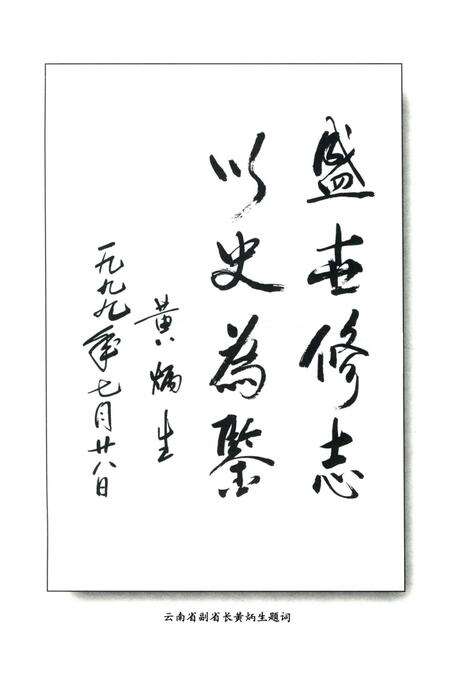 盛世修志
以史為鑒
黄炳生
一九九九年七月廿八日
云南省副省长黄炳生题词